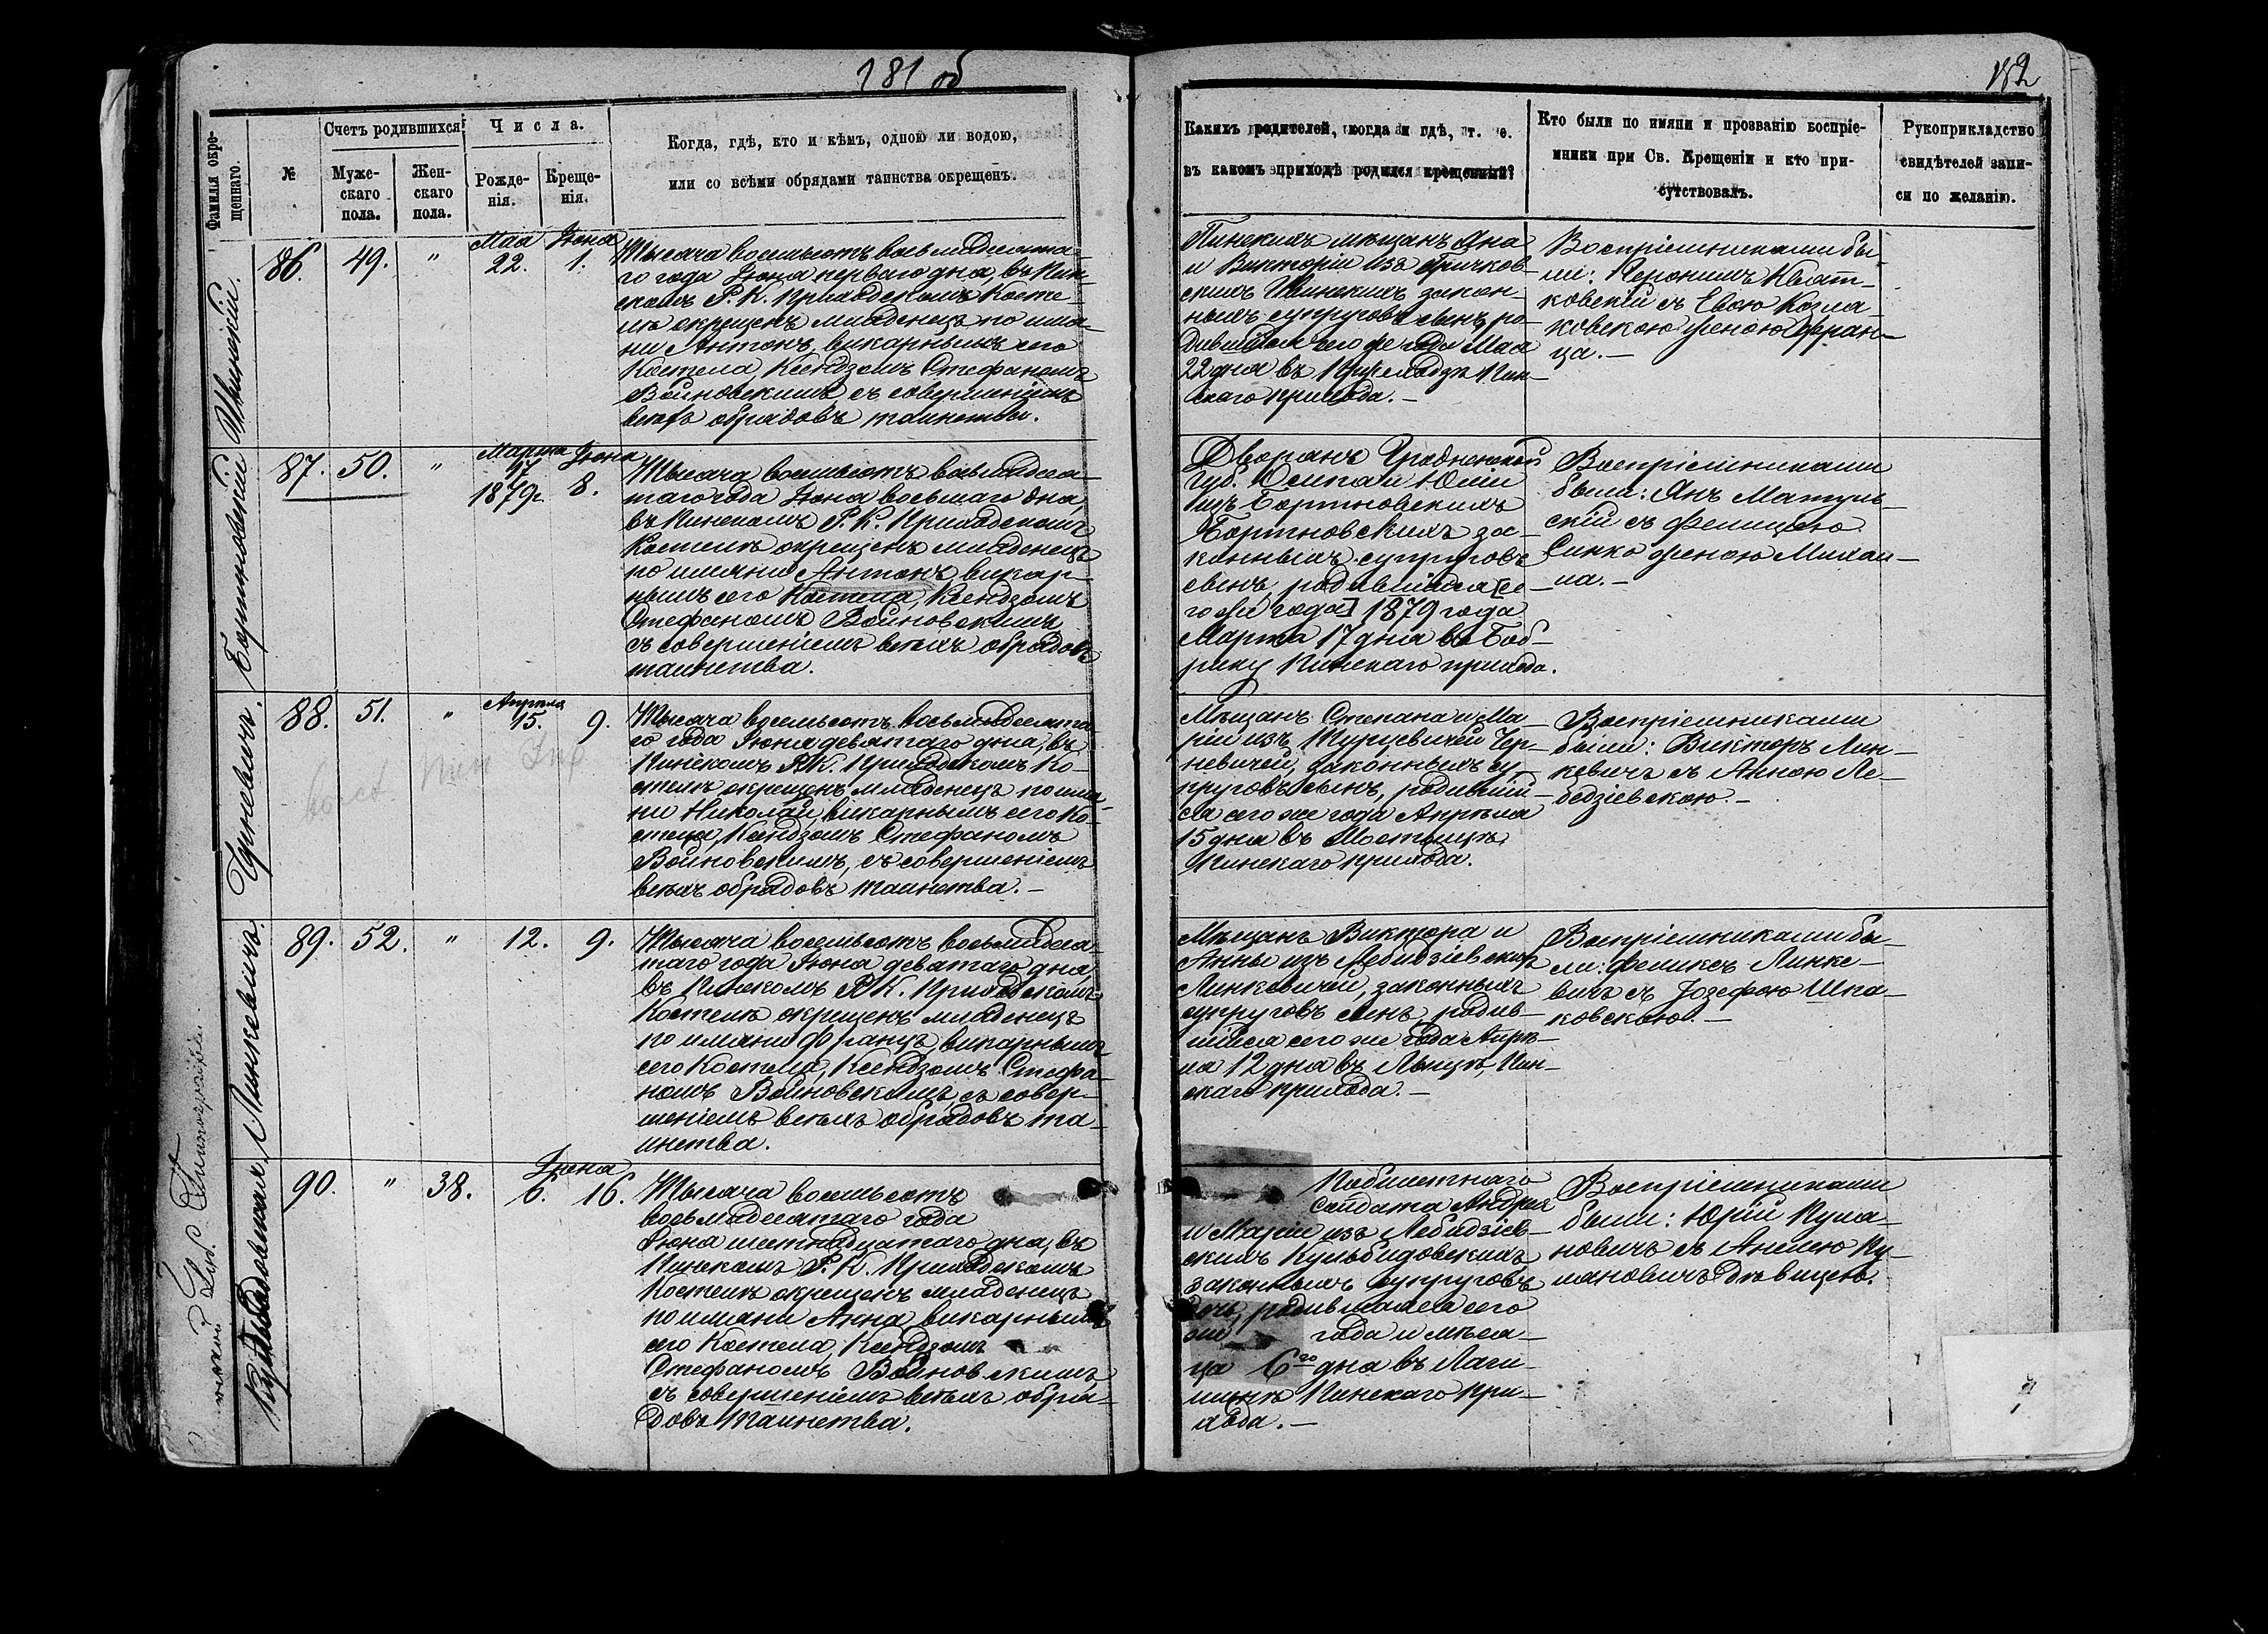 181 об
182
Фамилія окре-
щеннаго.
№
Счетъ родившихся
Муже-
скаго
пола.
Жен-
скаго
пола.
Числа.
Рожде-
нія.
Креще-
нія.
Когда, гдѣ, кто и кѣмъ, одною ли водою,
или со всѣми обрядами таинства окрещенъ.
Какихъ родителей, когда и гдѣ, т. е.
въ какомъ приходѣ родился крещенный?
Кто были по имяни и прозванію воспріе-
мники при Св. Крещеніи и кто при-
сутствовалъ.
Рукоприкладство
свидѣтелей запи-
си по желанію.
86.
49.
"
Мая
22.
Іюня
1.
Тысяча восемьсотъ восьмидесята-
го года Іюня перваго дня, въ Пин-
скомъ Р. К. Приходскомъ Косте-
лѣ окрещенъ младенецъ по имя-
ни Антонъ, викарнымъ сего
Костела, Ксендзомъ Стефаномъ
Войновскимъ, съ совершеніемъ
всѣхъ обрядовъ таинства.
Пинскихъ мѣщанъ Яна
и Викторіи изъ
скихъ закон-
ныхъ супруговъ сынъ, ро-
дившійся сего же года Мая
22 дня въ Пин-
скаго прихода. —
Воспріемниками бы-
ли: Іеронимъ Кват-
ковскій съ Евою Козла-
ковскою женою Фран-
ца. —
Бортновскій
87.
50.
"
Марта
17
1879г.
Іюня
8.
Тысяча восемьсотъ восьмидеся-
таго года Іюня восьмаго дня,
въ Пинскомъ Р. К. Приходскомъ
Костелѣ окрещенъ младенецъ
по имяни Антонъ, викар-
нымъ сего Костела, Ксендзомъ
Стефаномъ Войновскимъ
съ совершеніемъ всѣхъ обрядовъ
таинства.
Дворянъ Гродненской
Губ. Осипа и Юліи
изъ Бортновскихъ
Бортновскихъ за-
конныхъ супруговъ
сынъ, родившійся [се-
го же года] 1879 года
Марта 17 дня въ Боб-
рику Пинскаго прихода.
Воспріемниками
были: Янъ Матуль-
скій съ Фелицею
Синко женою Михаи-
ла. —
Черневичъ.
88.
51.
"
Апрѣля
15.
9.
Тысяча восемьсотъ восьмидесята-
го года Іюня девятаго дня, въ
Пинскомъ Р. К. Приходскомъ Ко-
стелѣ окрещенъ младенецъ по имя-
ни Николай, викарнымъ сего Ко-
стела, Ксендзомъ Стефаномъ
Войновскимъ, съ совершеніемъ
всѣхъ обрядовъ таинства. —
Мѣщанъ Степана и Ма-
ріи изъ Шуруевичей Чер-
невичей, законныхъ су-
пруговъ сынъ, родившій-
ся сего же года Апрѣля
15 дня въ
Пинскаго прихода.
Воспріемниками
были: Викторъ Лин-
кевичъ съ Анною Ле-
бедзіевскою. —
Линкевичъ.
89.
52.
"
12.
9.
Тысяча восемьсотъ восьмидеся-
таго года Іюня девятаго дня,
въ Пинскомъ Р. К. Приходскомъ
Костелѣ окрещенъ младенецъ
по имяни Францъ, викарнымъ
сего Костела, Ксендзомъ Стефа-
номъ Войновскимъ съ совер-
шеніемъ всѣхъ обрядовъ та-
инства.
Мѣщанъ Виктора и
Анны изъ Лебидзіевскихъ
Линкевичей, законныхъ
супруговъ сынъ, родив-
шійся сего же года Апрѣ-
ля 12 дня въ Пин-
скаго прихода. —
Воспріемниками бы-
ли: Феликсъ Линке-
вичъ съ Іозефою Шпа-
ковскою. —
Кульбидовская
90.
"
38.
Іюня
6.
16.
Тысяча восемьсотъ
восьмидесятаго года
Іюня шестнадцатаго дня, въ
Пинскомъ Р. К. Приходскомъ
Костелѣ окрещенъ младенецъ
по имяни Анна, викарнымъ
сего Костела, Ксендзомъ
Стефаномъ Войновскимъ,
съ совершеніемъ всѣхъ обря-
довъ таинства.
солдата Андрея
и Маріи изъ Лебидзіев-
скихъ Кульбидовскихъ
законныхъ супруговъ
дочь, родившаяся сего
же года и мѣся-
ца 6го дня въ Логи-
шинѣ Пинскаго при-
хода. —
Воспріемниками
были: Юрій Кула-
новичъ съ Анелею Ку-
лановичъ дѣвицею.